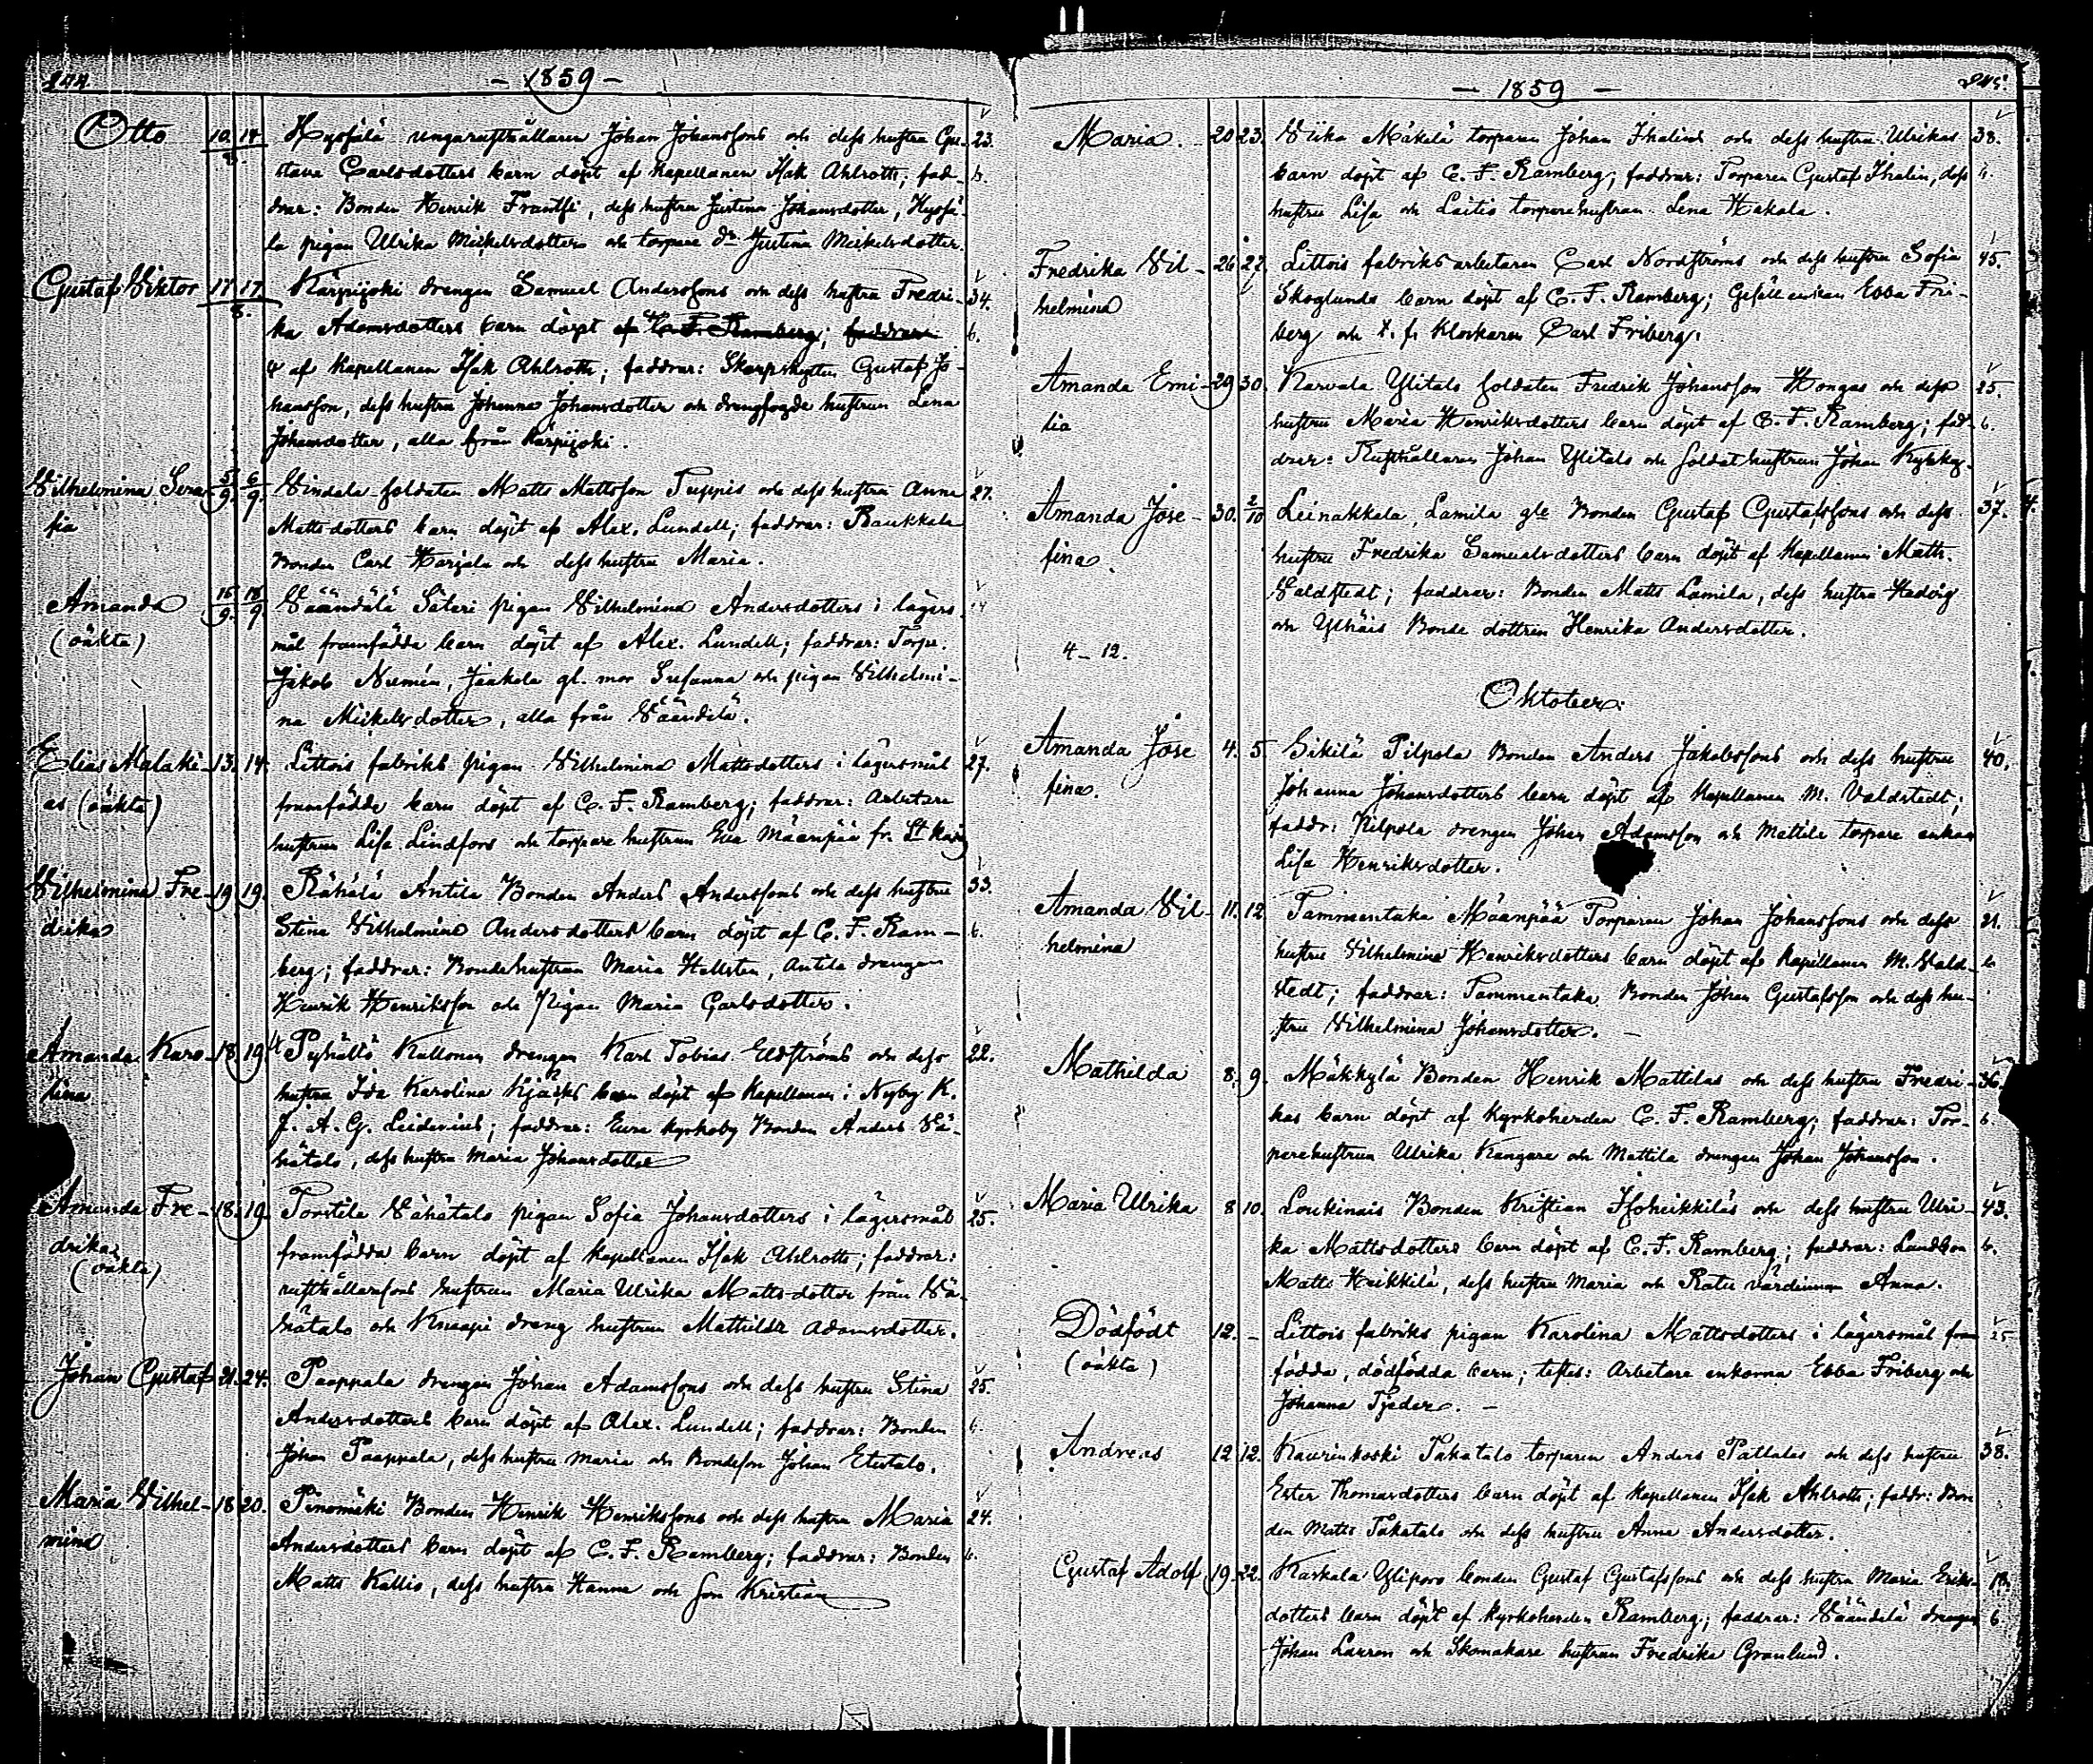 244.
- 1859 -
Otto 10/8. 14 Hysjälä ungarusthållaren Johan Johanssons och dess hustru Gu- 23.
stava Carlsdotters barn döpt af Kapellanen Isak Ahlroth; fad- b.
drar: Bonden Henrik Frantsi, dess hustru Justina Johansdotter, Hysjä-
la pigan Ulrika Mickelsdotter och torpare dr Justina Mickelsdotter.
Gustaf Viktor 17/8. 17. Kärpijoki drengen Samuel Anderssons och dess hustru Fredri- 34.
ka Adamsdotters barn döpt af C. F. Ramberg; faddrar b.
af Kapellanen Isak Ahlroth; faddrar: Skarpskytten Gustaf Jo-
hansson, dess hustru Johanna Johansdotter och drengfogde hustrun Lena
Johansdotter, alla från Kärpijoki.
Vilhelmina Sera- 5/9. 6/9. Vindala soldaten Matts Mattsson Tuppis och dess hustru Anna 27.
fia Mattsdotters barn döpt af Alex. Lundell; faddrar: Raukkala
Bonden Carl Harjala och dess hustru Maria.
Amanda 15/9. 18/9 Väändälä Säteri pigan Vilhelmina Andersdotters i lägers-
(oäkta) mål framfödda barn döpt af Alex. Lundell; faddrar: Torp.
Jakob Numén, Jaakola gl. mor Susanna och pigan Vilhelmi-
na Mickelsdotter, alla från Väändilä.
Elias Malaki- 13. 14. Littois fabriks pigan Vilhelmina Mattsdotters i lägersmål 27.
as (oäkta) framfödda barn döpt af C. F. Ramberg; faddrar: Arbetare
hustrun Lisa Lindfors och torpare hustrun Eva Mäenpää fr. St Karin
Vilhelmina Fre- 19 19. Rähälä Antila Bonden Anders Anderssons och dess hustru 33.
drika Stina Vilhelmina Andersdotters barn döpt af C. F. Ram- b.
berg; faddrar: Bondehustrun Maria Hellsten, Antila drengen
Henrik Henriksson och Pigan Maria Carlsdotter.
Amanda Karo- 18 19 Pyhältö Kullonen drengen Karl Tobias Eldströms och dess 22.
lina hustru Ida Karolina Kjäcks barn döpt af Kapellanen i Nyby K.
J. A. G. Lidenius; faddrar: Eura kyrkoby Bonden Anders Vä-
hätalo, dess hustru Maria Johansdotter
Amanda Fre- 18. 19. Torstila Vähätalo pigan Sofia Johansdotters i lägersmål 25.
drika framfödda barn döpt af Kapellanen Isak Ahlroth; faddrar:
(oäkta) rusthållarsons hustrun Maria Ulrika Mattsdotter från Vä-
hätalo och Knaapi dreng hustrun Mathilda Adamsdotter.
Johan Gustaf 21. 24. Paappala drengen Johan Adamssons och dess hustru Stina 25.
Andersdotters barn döpt af Alex. Lundell; faddrar: Bonden b.
Johan Paappala, dess hustru Maria och Bondeson Johan Etutalo.
Maria Vilhel- 18 20. Pinomäki Bonden Henrik Henrikssons och dess hustru Maria 24.
mina Andersdotters barn döpt af C. F. Ramberg; faddrar: Bonden b.
Matts Kallio, dess hustru Hanna och Son Kristian
245.
- 1859 -
Maria. 20 23. Viika Mäkelä torparen Johan Ihalins och dess hustru Ulrikas 38.
barn döpt af C. F. Ramberg; faddrar: Torparen Gustaf Ihalin, dess b.
hustru Lisa och Laitis torparehustrun Lena Hakala.
Fredrika Vil- 26 27. Littois fabriksarbetaren Carl Nordströms och dess hustru Sofia 45.
helmina Skoglunds barn döpt af C. F. Ramberg; Gesällenkan Ebba Fri-
berg och f. f. Klockaren Carl Friberg.
Amanda Emi- 29 30. Karvala Ylitalo soldaten Fredrik Johansson Hongas och dess 25.
lia hustru Maria Henriksdotters barn döpt af C. F. Ramberg; fad- b.
drar: Rusthållaren Johan Ylitalo och soldathustrun Johan
Amanda Jose- 30. 2/10 Leinakkala, Lamila gle Bonden Gustaf Gustafssons och dess 37. 4.
fina. hustru Fredrika Samuelsdotters barn döpt af Kapellanen Math.
Valdstedt; faddrar: Bonden Matts Lamila, dess hustru Hedvig
och Ylhäis Bonde dottren Henrika Andersdotter.
4 - 12.
Oktober.
Amanda Jose 4. 5 Sikilä Pilpola Bonden Anders Jakobssons och dess hustru 40.
fina. Johanna Johansdotters barn döpt af Kapellanen M. Valdstedt;
faddr: Pilpola drengen Johan Adamsson och Mattila torpare enkan
Lisa Henriksdotter.
Amanda Vil- 11. 12. Tammentaka Mäenpää Torparen Johan Johanssons och dess 21.
helmina hustru Vilhelmina Henriksdotters barn döpt af Kapellanen M. Vald- b.
stedt; faddrar: Tammentaka Bonden Johan Gustafsson och dess hu-
stru Vilhelmina Johansdotter. -
Mathilda 8. 9. Mäkkylä Bonden Henrik Mattilas och dess hustru Fredri- 36.
kas barn döpt af Kyrkoherden C. F. Ramberg; faddrar: Tor- b.
parehustrun Ulrika Kangare och Mattila drengen Johan Johansson.
Maria Ulrika 8 10. Loukinais Bonden Kristian Isoheikkiläs och dess hustru Ulri- 43.
ka Mattsdotters barn döpt af C. F. Ramberg; faddrar: Landbon b.
Matts Heikkilä, dess hustru Maria och Ratu värdinnan Anna.
Dödfödt 12. - Littois fabriks pigan Karolina Mattsdotters i lägersmål fram 25
(oäkta) födda, dödfödda barn; testes: Arbetare enkorna Ebba Friberg och
Johanna Tjeder. -
Andreas 12 12. Kaurinkoski Takatalo torparen Anders Pallalas och dess hustru 38.
Ester Thomasdotters barn döpt af Kapellanen Isak Ahlroth; faddr: Bon
den Matts Takatalo och dess hustru Anna Andersdotter.
Gustaf Adolf 19. 22. Kaskala Yliporo bonden Gustaf Gustafssons och dess hustru Maria Eriks-
dotters barn döpt af Kyrkoherden Ramberg; faddrar: Väändelä drengen b
Johan Lauren och Skomakare hustrun Fredrika Granlund.